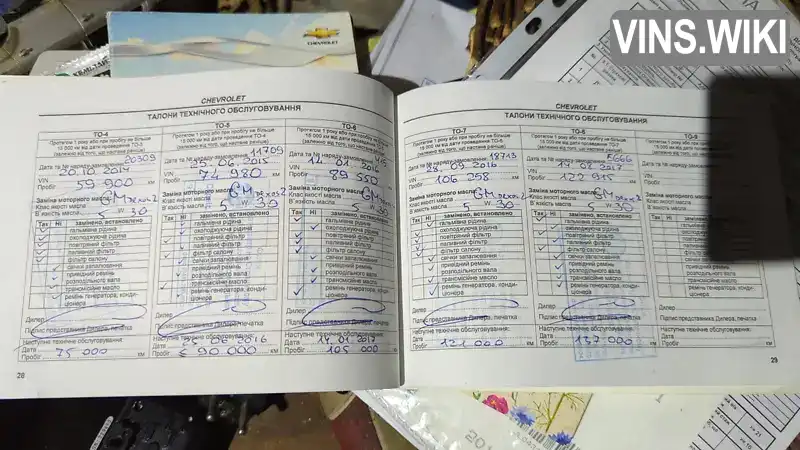 VINS.WIKI
CHEVROLET
CHEVROLET
ТАЛОНИ ТЕХНІЧНОГО ОБСЛУГОВУВАННЯ
ТО-4
Протягом 1 року або при пробігу не більше
15 000 км від дати проведення ТО-3
(залежно від того, що настане раніше)
Дата та № наряду-замовлення 20309
20.10.2014
VIN
Пробіг 59 900 км
Заміна моторного масла
Клас якості масла GM dexos2
В'язкість масла 5 W 30
Так Ні замінено, встановлено
гальмівна рідина
охолоджуюча рідина
повітряний фільтр
паливний фільтр
фільтр салону
свічки запалювання
привідний ремінь
розподільного вала
трансмісійне масло
ремінь генератора, конди-
ціонера
Дилер
Підпис представника Дилера, печатка
Наступне технічне обслуговування:
Дата
Пробіг 75 000 км
28
ТО-5
Протягом 1 року або при пробігу не більше
15 000 км від дати проведення ТО-4
(залежно від того, що настане раніше)
Дата та № наряду-замовлення 11709
06 2015
VIN
Пробіг 74 980 км
Заміна моторного масла
Клас якості масла GM dexos2
В'язкість масла 5 W 30
Так Ні замінено, встановлено
гальмівна рідина
охолоджуюча рідина
повітряний фільтр
паливний фільтр
фільтр салону
свічки запалювання
привідний ремінь
розподільного вала
трансмісійне масло
ремінь генератора, конди-
ціонера
Дилер
Підпис представника Дилера, печатка
Наступне технічне обслуговування:
Дата 06 2016
Пробіг 90 000 км
ТО-6
Протягом 1 року або при пробігу не більше
15 000 км від дати проведення ТО-5
(залежно від того, що настане раніше)
Дата та № наряду-замовлення 415
14 01 2016
VIN
Пробіг 89 550 км
Заміна моторного масла
Клас якості масла GM dexos2
В'язкість масла 5 W 30
Так Ні замінено, встановлено
гальмівна рідина
охолоджуюча рідина
повітряний фільтр
паливний фільтр
фільтр салону
свічки запалювання
привідний ремінь
розподільного вала
трансмісійне масло
ремінь генератора, конди-
ціонера
Дилер
Підпис представника Дилера, печатка
Наступне технічне обслуговування:
Дата 14 01 2017
Пробіг 105 000 км
CHEVROLET
ТАЛОНИ ТЕХНІЧНОГО ОБСЛУГОВУВАННЯ
ТО-7
Протягом 1 року або при пробігу не більше
15 000 км від дати проведення ТО-6
(залежно від того, що настане раніше)
Дата та № наряду-замовлення 18713
2016
VIN
Пробіг 106 258 км
Заміна моторного масла
Клас якості масла GM dexos2
В'язкість масла 5 W 30
Так Ні замінено, встановлено
гальмівна рідина
охолоджуюча рідина
повітряний фільтр
паливний фільтр
фільтр салону
свічки запалювання
привідний ремінь
розподільного вала
трансмісійне масло
ремінь генератора, конди-
ціонера
Дилер
Підпис представника Дилера, печатка
Наступне технічне обслуговування:
Дата
Пробіг 121 000 км
ТО-8
Протягом 1 року або при пробігу не більше
15 000 км від дати проведення ТО-7
(залежно від того, що настане раніше)
Дата та № наряду-замовлення 5666
VIN
Пробіг 122 915 км
Заміна моторного масла
Клас якості масла GM dexos2
В'язкість масла 5 W 30
Так Ні замінено, встановлено
гальмівна рідина
охолоджуюча рідина
повітряний фільтр
паливний фільтр
фільтр салону
свічки запалювання
привідний ремінь
розподільного вала
трансмісійне масло
ремінь генератора, конди-
ціонера
Дилер
Підпис представника Дилера, печатка
Наступне технічне обслуговування:
Дата
Пробіг 137 000 км
ТО-9
Дата та № наряду
VIN
Пробіг
Заміна моторного масла
Клас якості масла
В'язкість масла
Так Ні замінено, встановлено
розподільного вала
трансмісійне масло
ремінь генератора, конди-
ціонера
Дилер
Підпис представника Дилера, печатка
Наступне технічне обслуговування:
Дата
Пробіг км
29